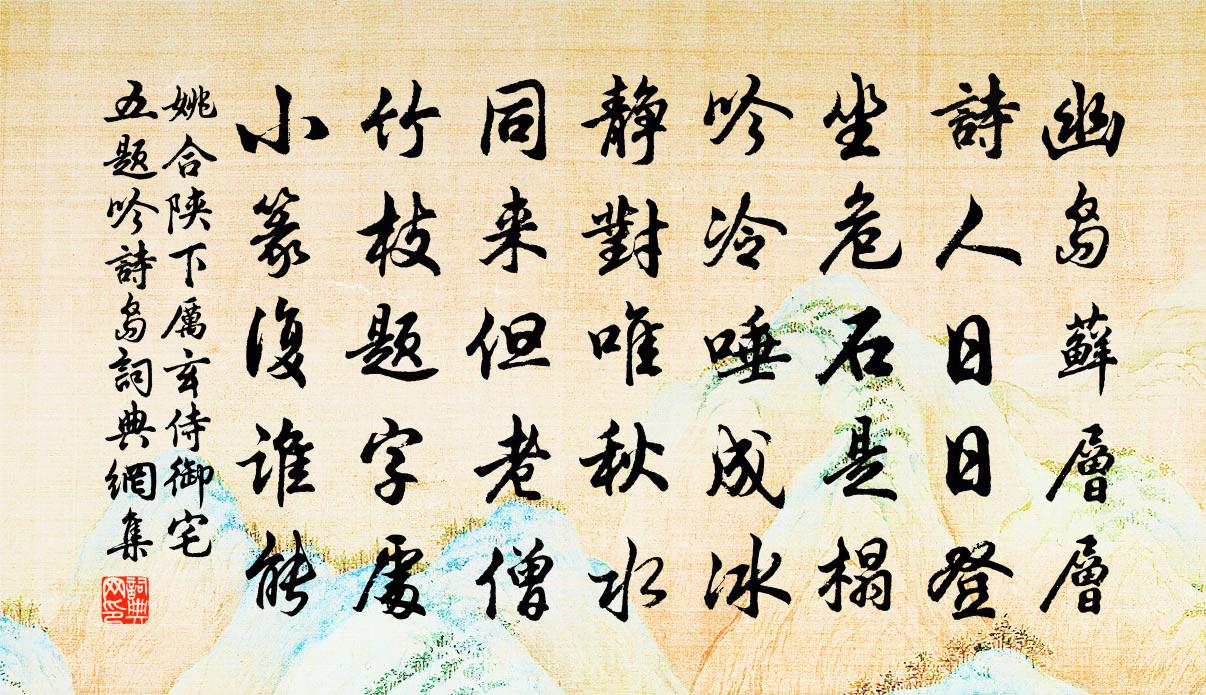 幽島蘚層層
詩人日日登
坐危石是榻
吟冷唾成冰
靜對唯秋水
同来但老僧
竹枝题字處
小篆復誰能
姚合陕下厲玄侍御宅
五题吟詩島詞典網集
詞典网印